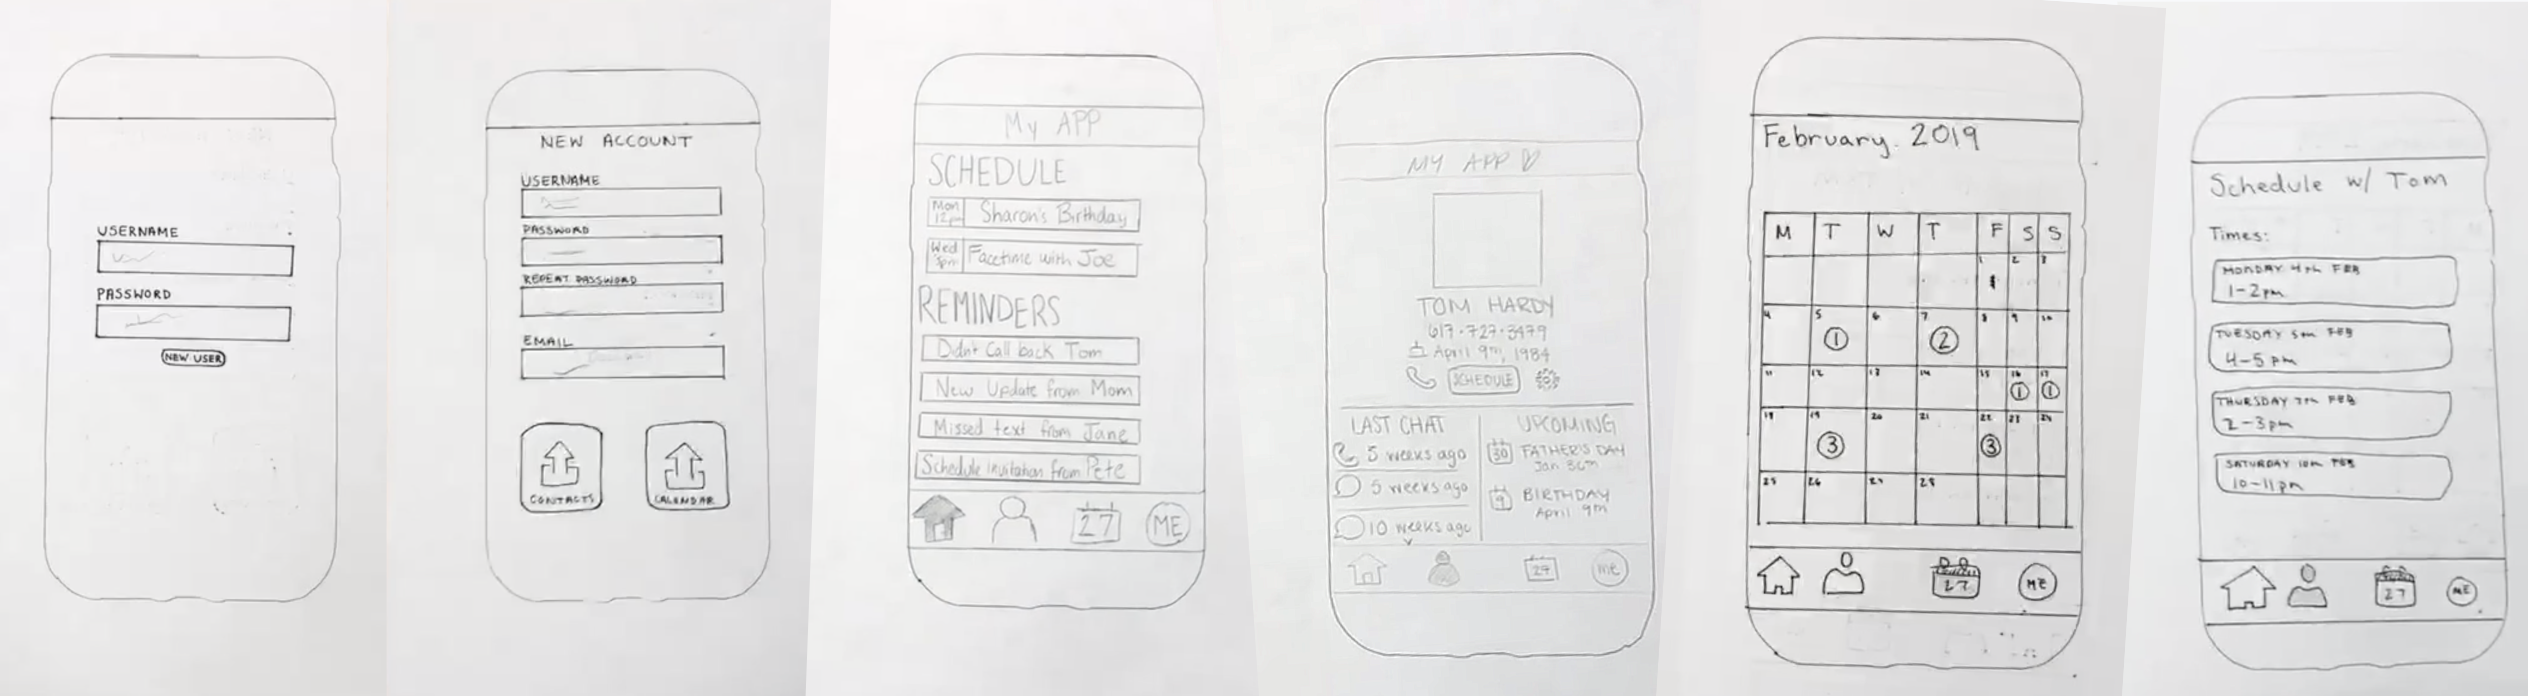 USERNAME
PASSWORD
NEW USER
NEW ACCOUNT
USERNAME
PASSWORD
REPEAT PASSWORD
EMAIL
CONTACTS
CALENDAR
My APP
SCHEDULE
Mon 12pm Sharon's Birthday
Wed 3pm Facetime with Joe
REMINDERS
Didn't Call back Tom
New Update from Mom
Missed text from Jane
Schedule invitation from Pete
27
ME
MY APP
TOM HARDY
617-727-3479
April 9th, 1984
SCHEDULE
LAST CHAT
5 weeks ago
5 weeks ago
10 weeks ago
UPCOMING
30 FATHER'S DAY
Jan 30th
9 BIRTHDAY
April 9th
27
ME
February. 2019
M T W T F S S
1 2 3
4 5 6 7 8 9 10
1 2
11 12 13 14 15 16 17
1 1
19 20 21 22 23 24
3 3
25 26 27 28
27
ME
Schedule w/ Tom
Times:
MONDAY 4th FEB
1-2pm
TUESDAY 5th FEB
4-5 pm
THURSDAY 7th FEB
2-3pm
SATURDAY 10th FEB
10-11pm
27
ME